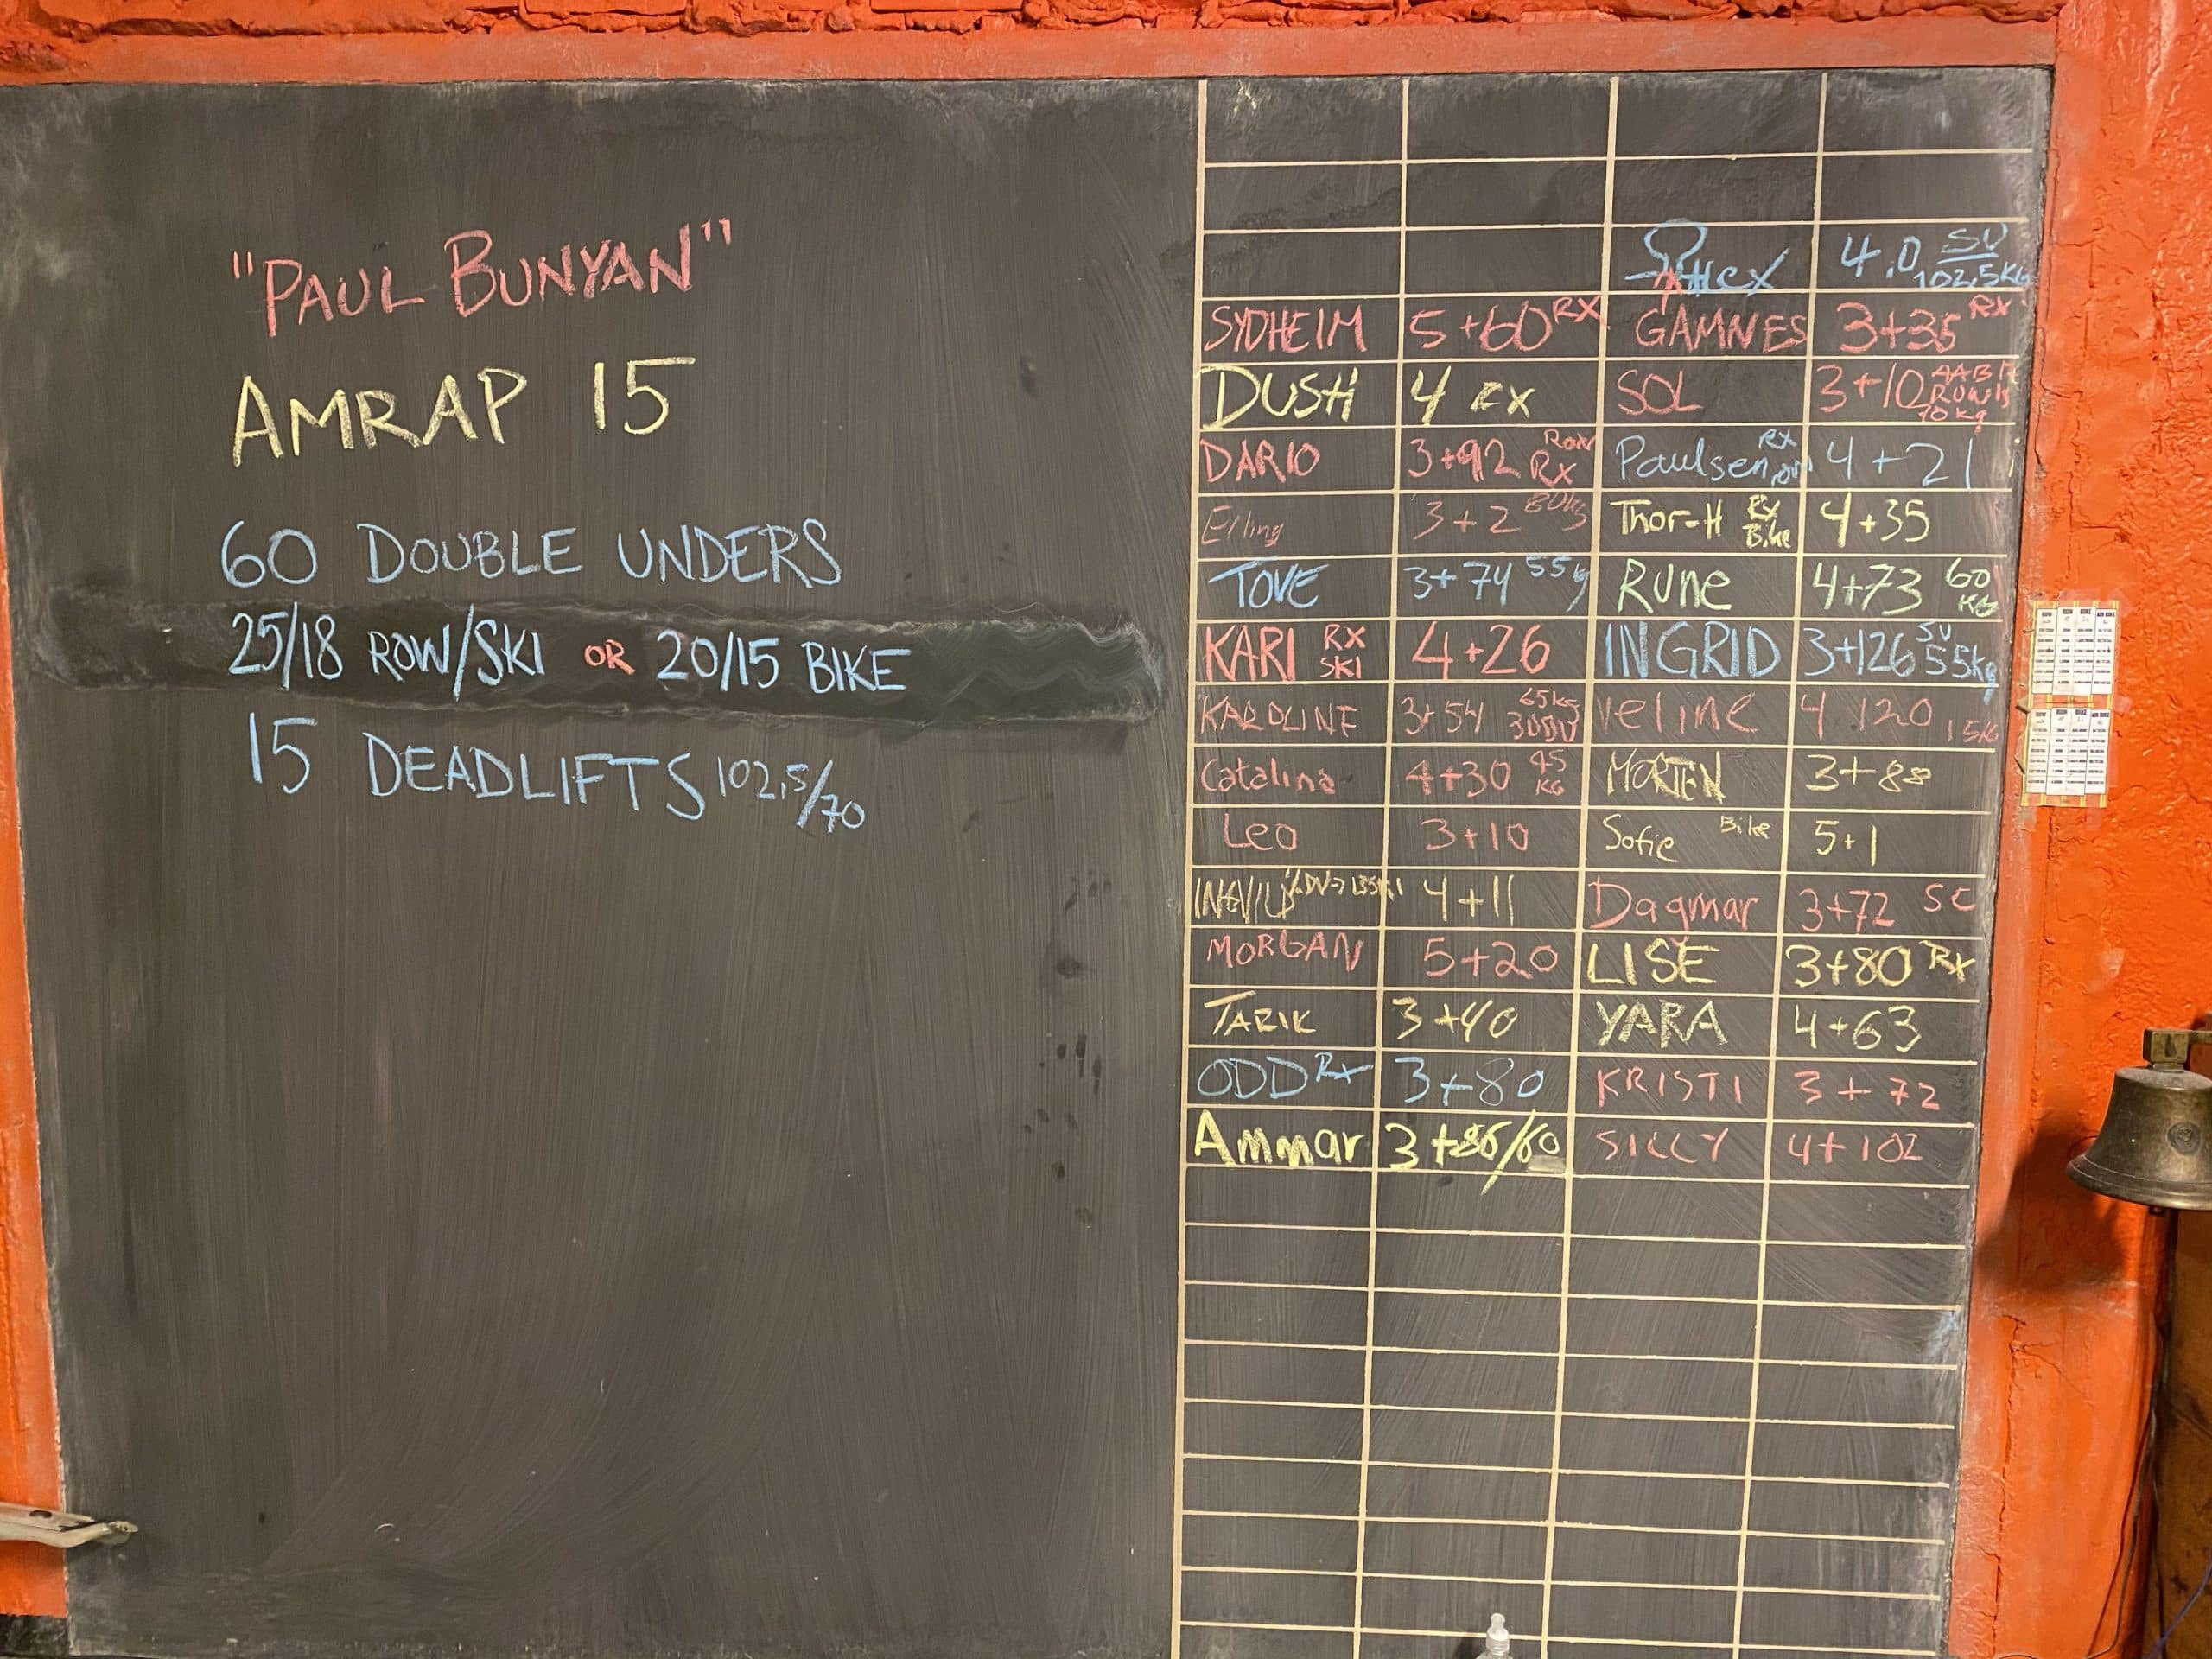 "PAUL BUNYAN"
AMRAP 15
60 DOUBLE UNDERS
25/18 ROW/SKI OR 20/15 BIKE
15 DEADLIFTS 102,5/70
4.0 SU 102,5KG
SYDHEIM 5+60 RX GAMNES 3+35 RX
DUSH 4 RX SOL 3+10 70kg
DARIO 3+92 Row RX Paulsen RX 4+21
Erling 3+2 80kg Thor-H RX Bike 4+35
TOVE 3+74 55kg Rune 4+73 60 KG
KARI RX SKI 4+26 INGRID 3+126 SU 55kg
KAROLINE 3+54 65kg 30DU veline 4 120 15KG
Catalina 4+30 45 KG MORTEN 3+88
Leo 3+10 Sofie Bike 5+1
4+11 Dagmar 3+72 SC
MORGAN 5+20 LISE 3+80 RX
TARIK 3+40 YARA 4+63
ODD RX 3+80 KRISTI 3+72
Ammar 3+86/60 SILLY 4+102